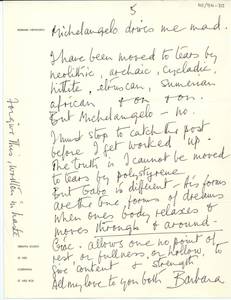 5
BARBARA HEPWORTH
Michelangelo drives me mad.
I have been moved to tears by
neolithic, archaic, cycladic,
hittite, etruscan, sumerian
african + on + on.
But Michelangelo — no.
I must stop to catch the post
before I get worked up –
The truth is I cannot be moved
to tears by polystyrene
But Gabo is different – his forms
are the one forms of dreams
When ones body relaxes &
moves through & around –
allows one no point of
rest or fullness, or hollow, to
give content & strength.
All my love to you both Barbara
TREWYN STUDIO
ST IVES
CORNWALL
Forgive this, written in haste